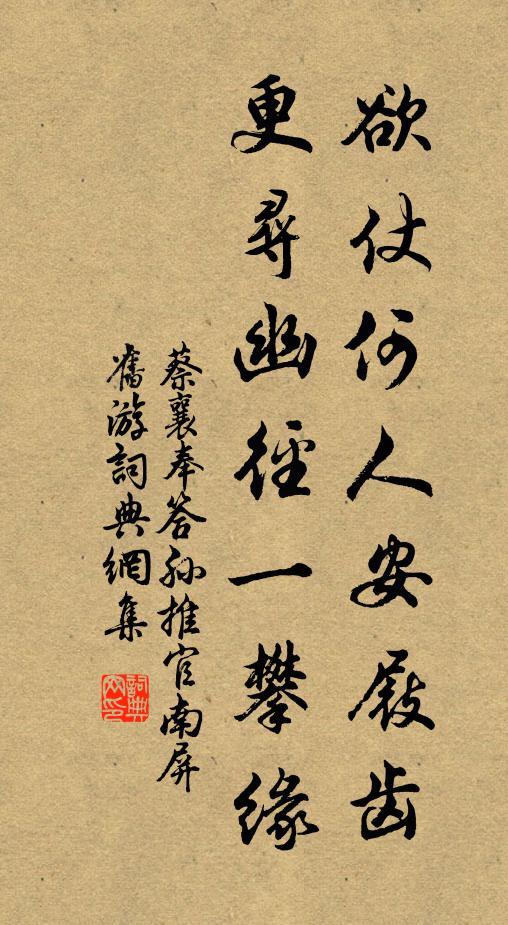 欲仗何人安屐齿
更尋幽徑一攀緣
蔡襄奉答孙推官南屏
舊游詞典網集
詞典